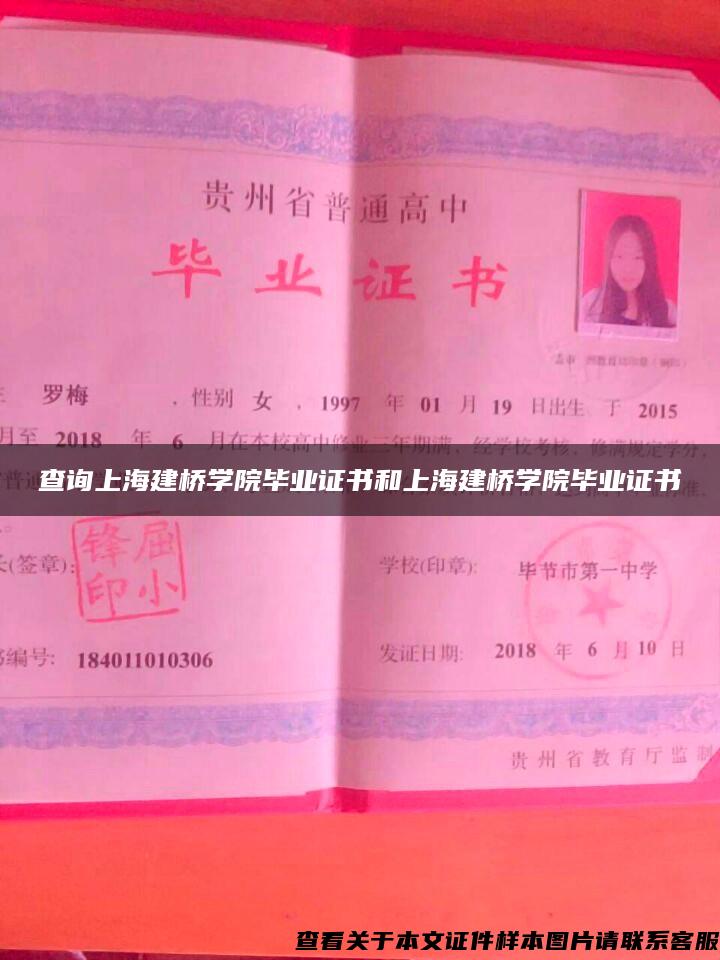 贵州省普通高中
毕业证书
罗梅 ,性别 女 ,1997 年 01 月 19 日出生、于 2015
月至 2018 年 6 月在本校高中修业三年期满,经学校考核,修满规定学分,
查询上海建桥学院毕业证书和上海建桥学院毕业证书
(签章): 屈小锋印
学校(印章): 毕节市第一中学
编号: 184011010306
发证日期: 2018 年 6 月 10 日
贵州省教育厅监制
查看关于本文证件样本图片请联系客服